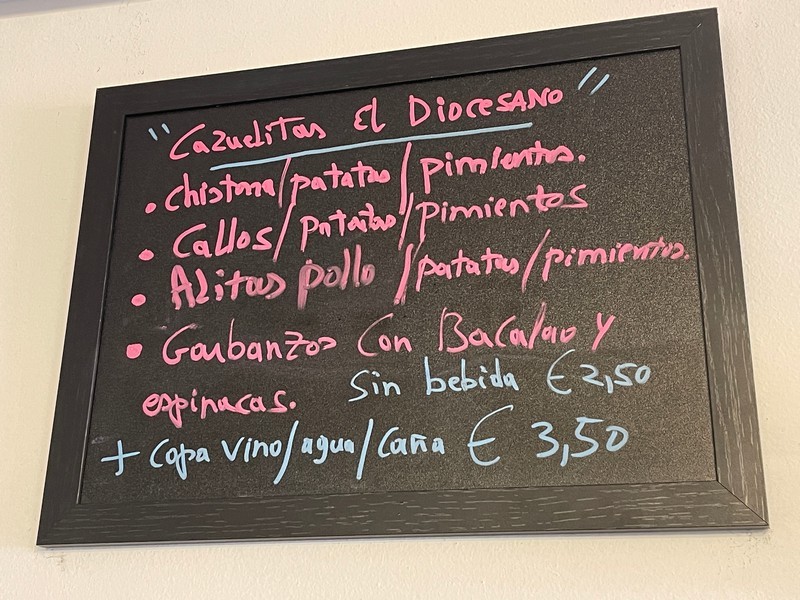 "Cazuelitas El Diocesano"
• Chistorra/patatas/pimientos.
• Callos/patatas/pimientos
• Alitas pollo/patatas/pimientos.
• Garbanzos con Bacalao y
espinacas. Sin bebida € 2,50
+ Copa vino/agua/caña € 3,50